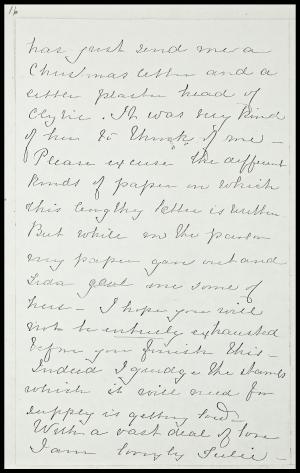 16
has just send me a
Christmas letter and a
little plaster head of
Clytie. It was very kind
of her to think of me –
Please excuse the different
kinds of paper on which
this lengthy letter is written
But while in the parlor
my paper gave out and
lent me some of
hers – I hope you will
not be entirely exhausted
before you finish this –
Indeed I grudge the stamps
which it will need for
supply is getting low
With a vast deal of love
I am